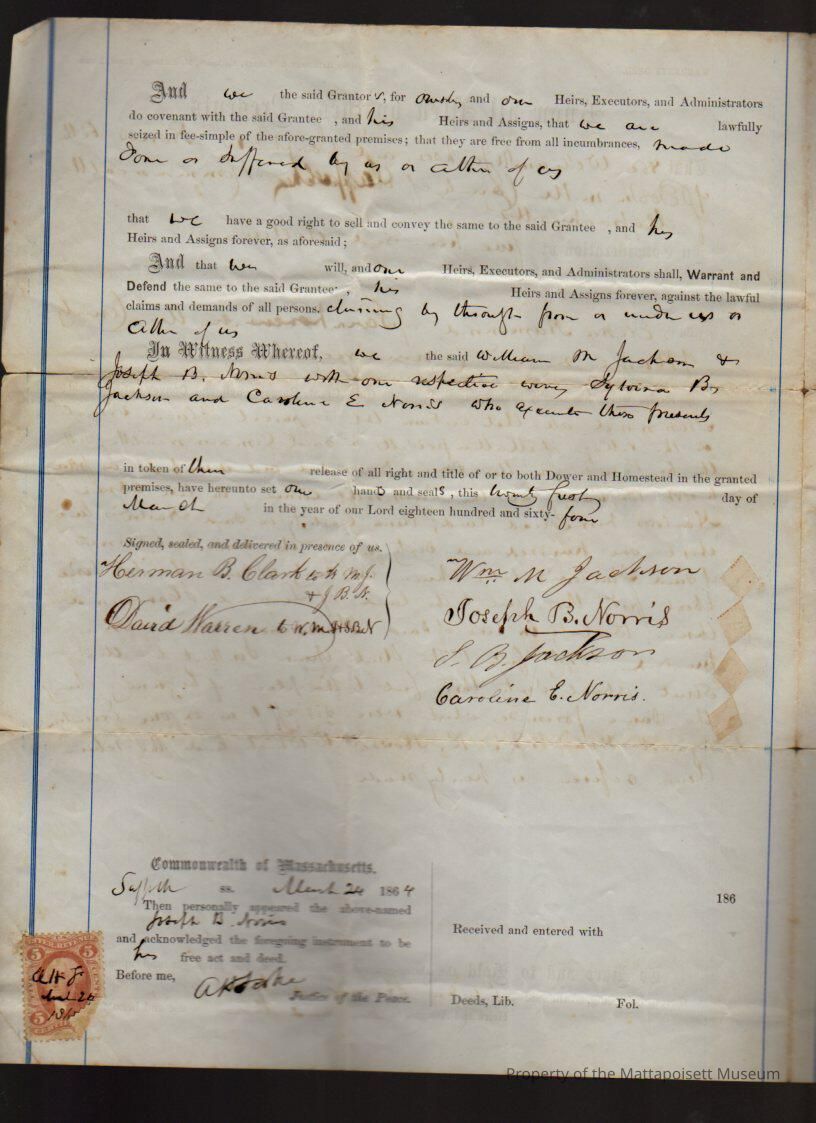 And we the said Grantors, for ourselves and our Heirs, Executors, and Administrators
do covenant with the said Grantee , and his Heirs and Assigns, that we are lawfully
seized in fee-simple of the afore-granted premises; that they are free from all incumbrances, made
done or suffered by us or either of us
that we have a good right to sell and convey the same to the said Grantee , and his
Heirs and Assigns forever, as aforesaid;
And that we will, and our Heirs, Executors, and Administrators shall, Warrant and
Defend the same to the said Grantee , his Heirs and Assigns forever, against the lawful
claims and demands of all persons, claiming by through from or under us or
either of us
In Witness Whereof, we the said William M Jackson &
Joseph B. Norris with our respective wives B.
Jackson and Caroline E Norris who execute these presents
in token of their release of all right and title of or to both Dower and Homestead in the granted
premises, have hereunto set our hands and seals, this twenty first day of
March in the year of our Lord eighteen hundred and sixty-four
Signed, sealed, and delivered in presence of us.
Herman B. Clark to W. M. J.
& J. B. N.
David Warren to
Wm M Jackson
Joseph B. Norris
S. B. Jackson
Caroline E. Norris.
Commonwealth of Massachusetts.
Suffolk ss. March 24 1864
Then personally appeared the above-named
Joseph B. Norris
and acknowledged the foregoing instrument to be
his free act and deed.
Before me,
Justice of the Peace.
186
Received and entered with
Deeds, Lib. Fol.
INTER. REVENUE
5 5
5
CENTS
Property of the Mattapoisett Museum